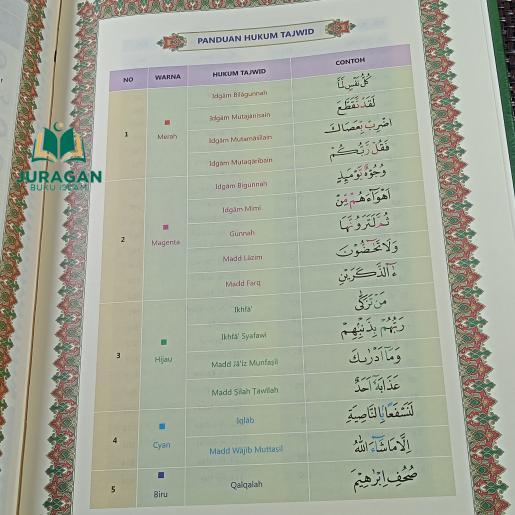 PANDUAN HUKUM TAJWID
NO WARNA HUKUM TAJWID CONTOH
1 Merah
Idgām Bilāgunnah كُلُّ نَفْسٍ لَّمَّا
Idgām Mutajānisain لَقَدْ تَّقَطَّعَ
Idgām Mutamāṡilain اضْرِبْ بِّعَصَاكَ
Idgām Mutaqāribain فَقُلْ رَّبُّكُمْ
2 Magenta
Idgām Bigunnah وُجُوْهٌ يَّوْمَىِٕذٍ
Idgām Mimi اَهْوَاۤءَهُمْ مِّنْ
Gunnah ثُمَّ لَتَرَوُنَّهَا
Madd Lāzim وَلَا تَحٰۤضُّوْنَ
Madd Farq ءٰۤالذَّكَرَيْنِ
3 Hijau
Ikhfā' مَنْ تَزَكّٰى
Ikhfā' Syafawi رَبُّهُمْ بِذَنْۢبِهِمْ
Madd Jā'iz Munfaṣil وَمَآ اَدْرٰىكَ
Madd Ṣilah Ṭawīlah عَذَابَهٗٓ اَحَدٌ
4 Cyan
Iqlāb لَنَسْفَعًاۢ بِالنَّاصِيَةِ
Madd Wājib Muttaṣil اِلَّا مَا شَاۤءَ اللّٰهُ
5 Biru
Qalqalah صُحُفِ اِبْرٰهِيْمَ
JURAGAN
BUKU ISLAM